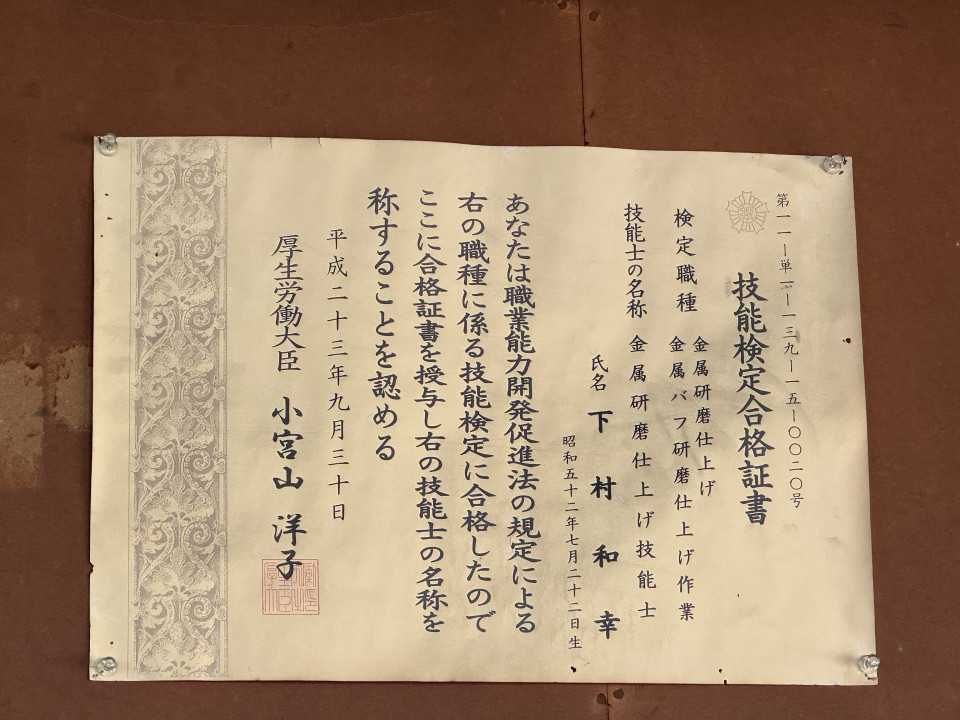 第一一―単一―一三九―一五―〇〇二〇号
技能検定合格証書
検定職種 金属研磨仕上げ
金属バフ研磨仕上げ作業
技能士の名称 金属研磨仕上げ技能士
氏名 下村和幸
昭和五十二年七月二十二日生
あなたは職業能力開発促進法の規定による
右の職種に係る技能検定に合格したので
ここに合格証書を授与し右の技能士の名称を
称することを認める
平成二十三年九月三十日
厚生労働大臣 小宮山洋子